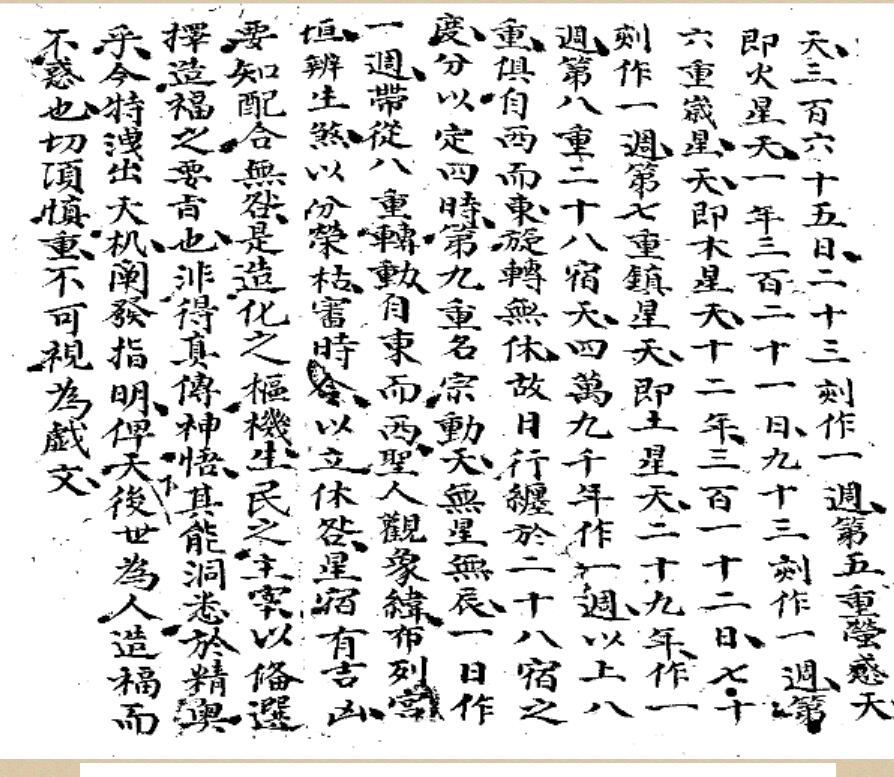 天三百六十五日二十三刻作一週第五重熒惑天
即火星天一年三百二十一日九十三刻作一週第
六重嵗星天即木星天十二年三百一十二日七十
刻作一週第七重鎮星天即土星天二十九年作一
週第八重二十八宿天四萬九千年作一週以上八
重俱自西而東旋轉無休故日行纏於二十八宿之
度分以定四時第九重名宗動天無星無辰一日作
一週帶從八重轉動自東而西聖人觀象緯布列宮
垣辨生煞以分榮枯審時令以立休咎星宿有吉凶
要知配合無咎是造化之樞機生民之主宰以俻選
擇造福之要旨也非得真傳神悟其能洞悉於精奥
乎今特洩出天机闡發指明俾天下後世為人造福而
不惑也切須慎重不可視為戯文